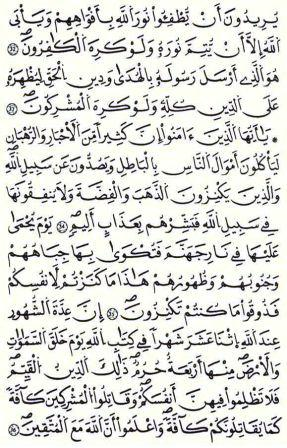 يُرِيدُونَ أَنْ يُّطْفِـُٔواْ نُورَ اَ۬للَّهِ بِأَفْوَٰهِهِمْ وَيَأْبَى
اَ۬للَّهُ إِلَّآ أَنْ يُّتِمَّ نُورَهُۥ وَلَوْ كَرِهَ اَ۬لْكَٰفِرُونَۖ ٣٢
هُوَ اَ۬لذِےٓ أَرْسَلَ رَسُولَهُۥ بِالْهُد۪ىٰ وَدِينِ اِ۬لْحَقِّ لِيُظْهِرَهُۥ
عَلَى اَ۬لدِّينِ كُلِّهِۦ وَلَوْ كَرِهَ اَ۬لْمُشْرِكُونَۖ ٣٣
۞ يَٰٓأَيُّهَا اَ۬لذِينَ ءَامَنُوٓاْ إِنَّ كَثِيراً مِّنَ اَ۬لَاحْبِارِ وَالرُّهْبَانِ
لَيَأْكُلُونَ أَمْوَٰلَ اَ۬لنَّاسِ بِالْبَٰطِلِ وَيَصُدُّونَ عَن سَبِيلِ اِ۬للَّهِۖ
وَالذِينَ يَكْنِزُونَ اَ۬لذَّهَبَ وَالْفِضَّةَ وَلَا يُنفِقُونَهَا
فِے سَبِيلِ اِ۬للَّهِ فَبَشِّرْهُم بِعَذَابٍ أَلِيمٖۖ ٣٤ يَوْمَ يُحْم۪ىٰ
عَلَيْهَا فِے نَارِ جَهَنَّمَ فَتُكْو۪ىٰ بِهَا جِبَاهُهُمْ
وَجُنُوبُهُمْ وَظُهُورُهُمْ هَٰذَا مَا كَنَزْتُمْ لِأَنفُسِكُمْ
فَذُوقُواْ مَا كُنتُمْ تَكْنِزُونَۖ ٣٥ إِنَّ عِدَّةَ اَ۬لشُّهُورِ
عِندَ اَ۬للَّهِ اِ۪ثْنَا عَشَرَ شَهْراً فِے كِتَٰبِ اِ۬للَّهِ يَوْمَ خَلَقَ اَ۬لسَّمَٰوَٰتِ
وَالَارْضَ مِنْهَآ أَرْبَعَةٌ حُرُمٞۖ ذَٰلِكَ اَ۬لدِّينُ اُ۬لْقَيِّمُۖ
فَلَا تَظْلِمُواْ فِيهِنَّ أَنفُسَكُمْۖ وَقَٰتِلُواْ اُ۬لْمُشْرِكِينَ كَآفَّةٗ
كَمَا يُقَٰتِلُونَكُمْ كَآفَّةٗۖ وَاعْلَمُوٓاْ أَنَّ اَ۬للَّهَ مَعَ اَ۬لْمُتَّقِينَۖ ٣٦